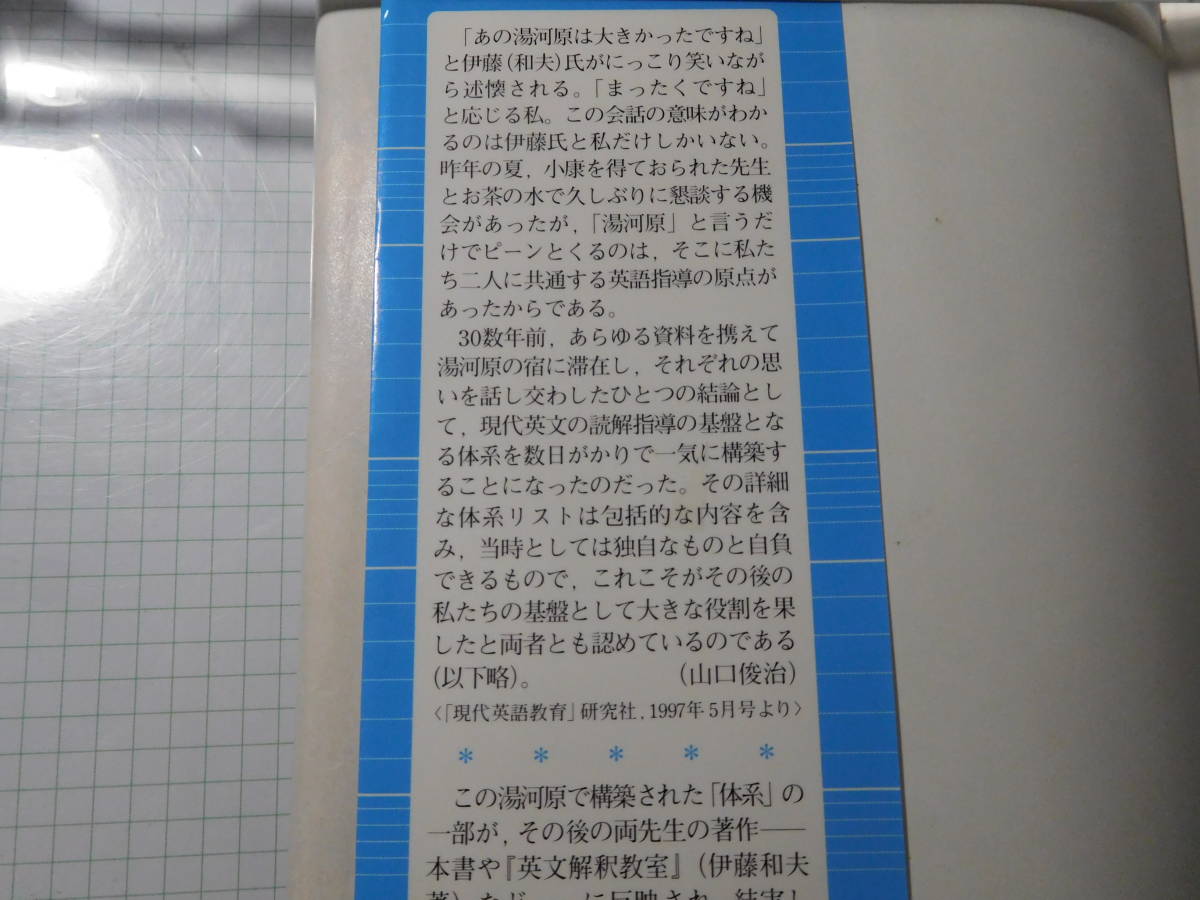 「あの湯河原は大きかったですね」
と伊藤(和夫)氏がにっこり笑いなが
ら述懐される。「まったくですね」
と応じる私。この会話の意味がわか
るのは伊藤氏と私だけしかいない。
昨年の夏，小康を得ておられた先生
とお茶の水で久しぶりに懇談する機
会があったが，「湯河原」と言うだ
けでピーンとくるのは，そこに私た
ち二人に共通する英語指導の原点が
あったからである。
30数年前，あらゆる資料を携えて
湯河原の宿に滞在し，それぞれの思
いを話し交わしたひとつの結論とし
て，現代英文の読解指導の基盤とな
る体系を数日がかりで一気に構築す
ることになったのだった。その詳細
な体系リストは包括的な内容を含
み，当時としては独自なものと自負
できるもので，これこそがその後の
私たちの基盤として大きな役割を果
したと両者とも認めているのである
(以下略)。 (山口俊治)
〈「現代英語教育」研究社，1997年5月号より〉
＊ ＊ ＊ ＊ ＊
この湯河原で構築された「体系」の
一部が，その後の両先生の著作――
本書や『英文解釈教室』(伊藤和夫
著)など――に反映され，結実し